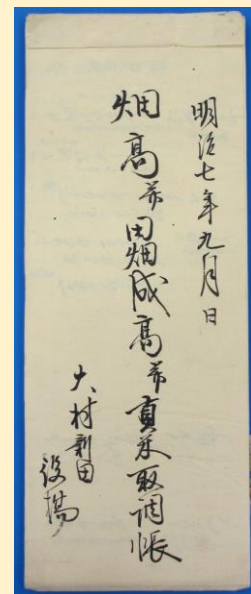 明治七年九月日
畑高并田畑成高并貢米取調帳
大村新田
役場